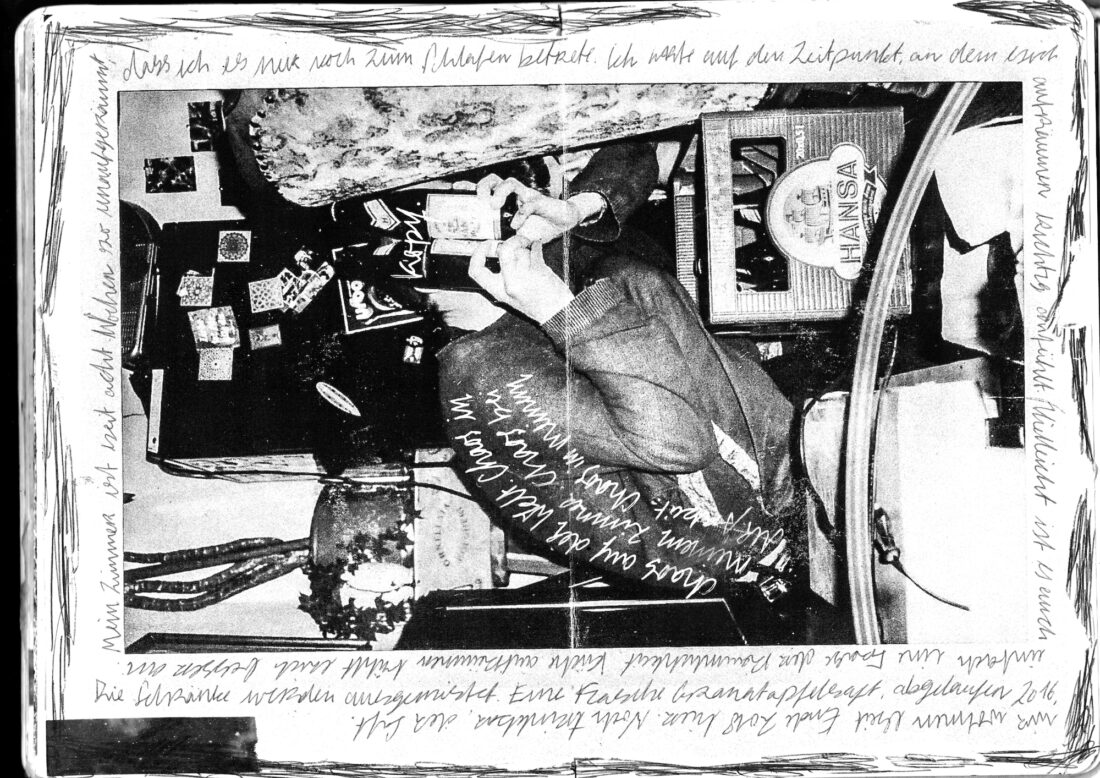 Mein Zimmer ist seit acht Wochen so unaufgeräumt,
dass ich es nur noch zum Schlafen betrete. Ich warte auf den Zeitpunkt, an dem es sich
aufräumen richtig anfühlt. Vielleicht ist es auch
einfach eine Frage der Räumlichkeit. Küche aufräumen fühlt sich besser an.
Die Schränke werden ausgemistet. Eine Flasche Granatapfelsaft, abgelaufen 2016,
wir wohnen seit Ende 2018 hier. Noch trinkbar, der Saft.
Chaos auf der Welt. Chaos in
meinem Zimmer. Chaos bei
der Arbeit. Chaos in meinem
Kopf.
HANSA
UNO